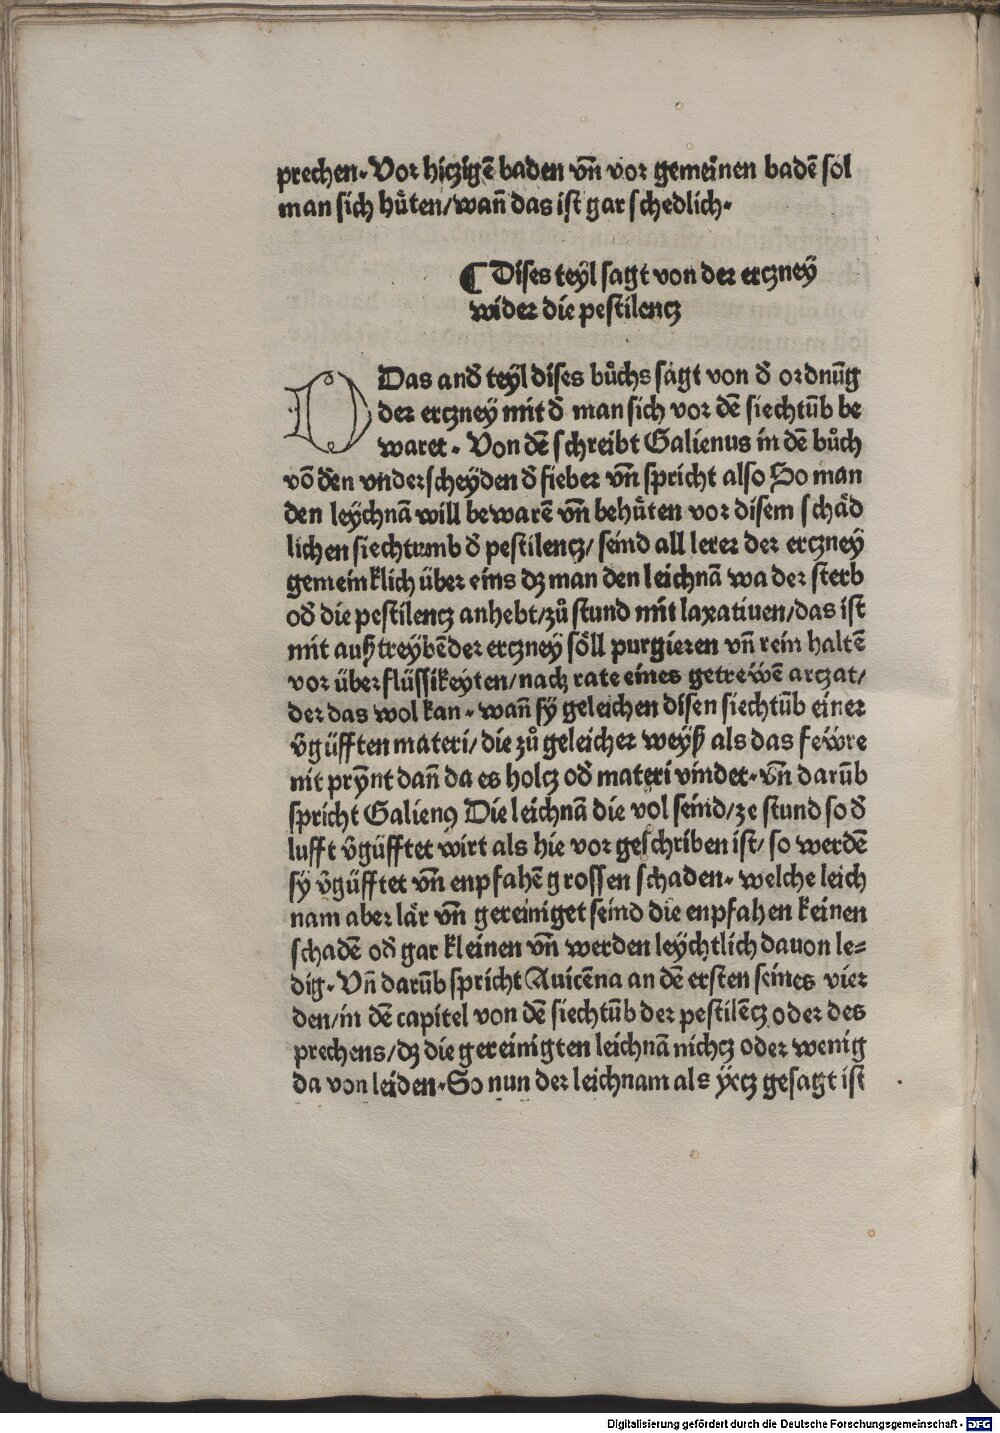 prechen. Vor hiczigē baden vn̄ vor gemeinen badē sol
man sich huͤten/wan̄ das ist gar schedlich.
¶ Dises teyl sagt von der erczney
wider die pestilencz
Das and̄ teyl dises buͦchs sagt von d̄ ordnūg
der erczney mit d̄ man sich vor dē siechtūb be
waret. Von dē schreibt Galienus in dē buͦch
vō den vnderscheyden d̄ fieber vn̄ spricht also So man
den leychnā will bewarē vn̄ behuͤten vor disem schaͤd
lichen siechtumb d̄ pestilencz/ seind all lerer der erczney
gemeinklich über eins dz man den leichnā wa der sterb
od̄ die pestilencz anhebt/zuͦ stund mit laxatiuen/das ist
mit außtreybēder erczney soͤll purgieren vn̄ rein haltē
vor überflüssikeyten/nach rate eines getreẅē arczat/
der das wol kan. wan̄ sy geleichen disen siechtūb einer
v̄güfften materi/die zuͦ geleicher weyß als das feẅre
nit pryn̄t dan̄ da es holcz od̄ materi vindet. vn̄ darūb
spricht Galienꝰ Die leichnā die vol seind/ze stund so d̄
lufft v̄güfftet wirt als hie vor geschriben ist/ so werdē
sy v̄güfftet vn̄ enpfahē grossen schaden. welche leich
nam aber laͤr vn̄ gereiniget seind die enpfahen keinen
schadē od̄ gar kleinen vn̄ werden leychtlich dauon le⸗
dig. Vn̄ darūb spricht Auicēna an dē ersten seines vier
den/in dē capitel von dē siechtūb der pestilēcz oder des
prechens/dz die gereinigten leichnā nichcz oder wenig
da von leiden. So nun der leichnam als yecz gesagt ist
Digitalisierung gefördert durch die Deutsche Forschungsgemeinschaft - DFG